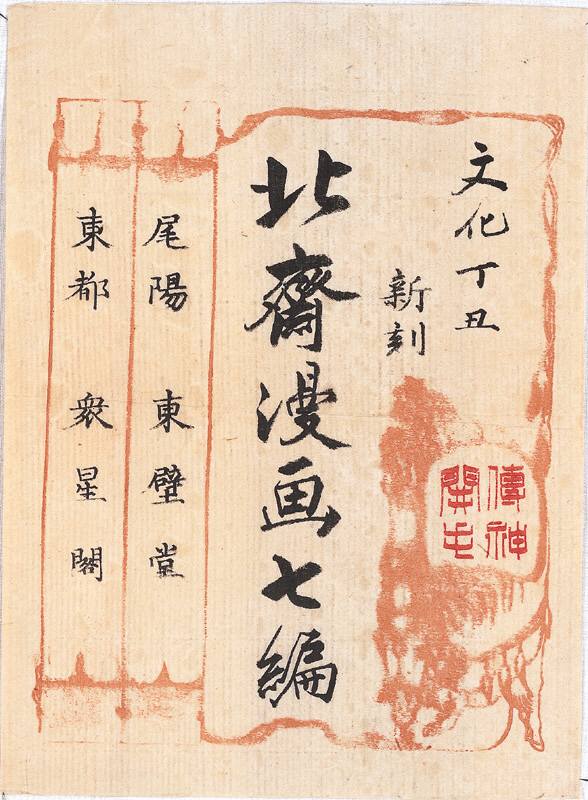 文化丁丑
新刻
傳神
開手
北齋漫画七編
尾陽 東壁堂
東都 衆星閣